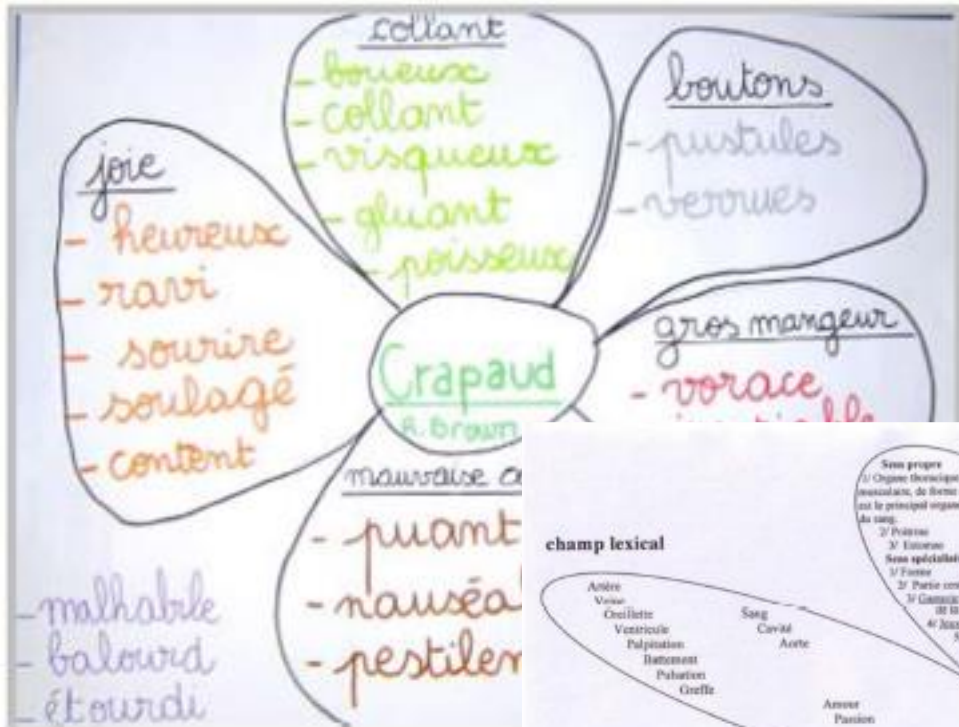 collant
- boueux
- collant
- visqueux
- gluant
- poisseux
boutons
- pustules
- verrues
joie
- heureux
- ravi
- sourire
- soulagé
- content
gros mangeur
- vorace
Crapaud
R. Brown
mauvaise
- puant
- nauséa
- pestilen
- malhabile
- balourd
- étourdi
champ lexical
Artère
Veine
Oreillette
Ventricule
Palpitation
Battement
Pulsation
Greffe
Sang
Cavité
Aorte
Amour
Passion
Sens propre
1/ Organe thoracique
musculaire, de forme
est le principal organe
du sang.
2/ Poitrine
3/ Estomac
Sens spécialisé
1/ Forme
2/ Partie cen